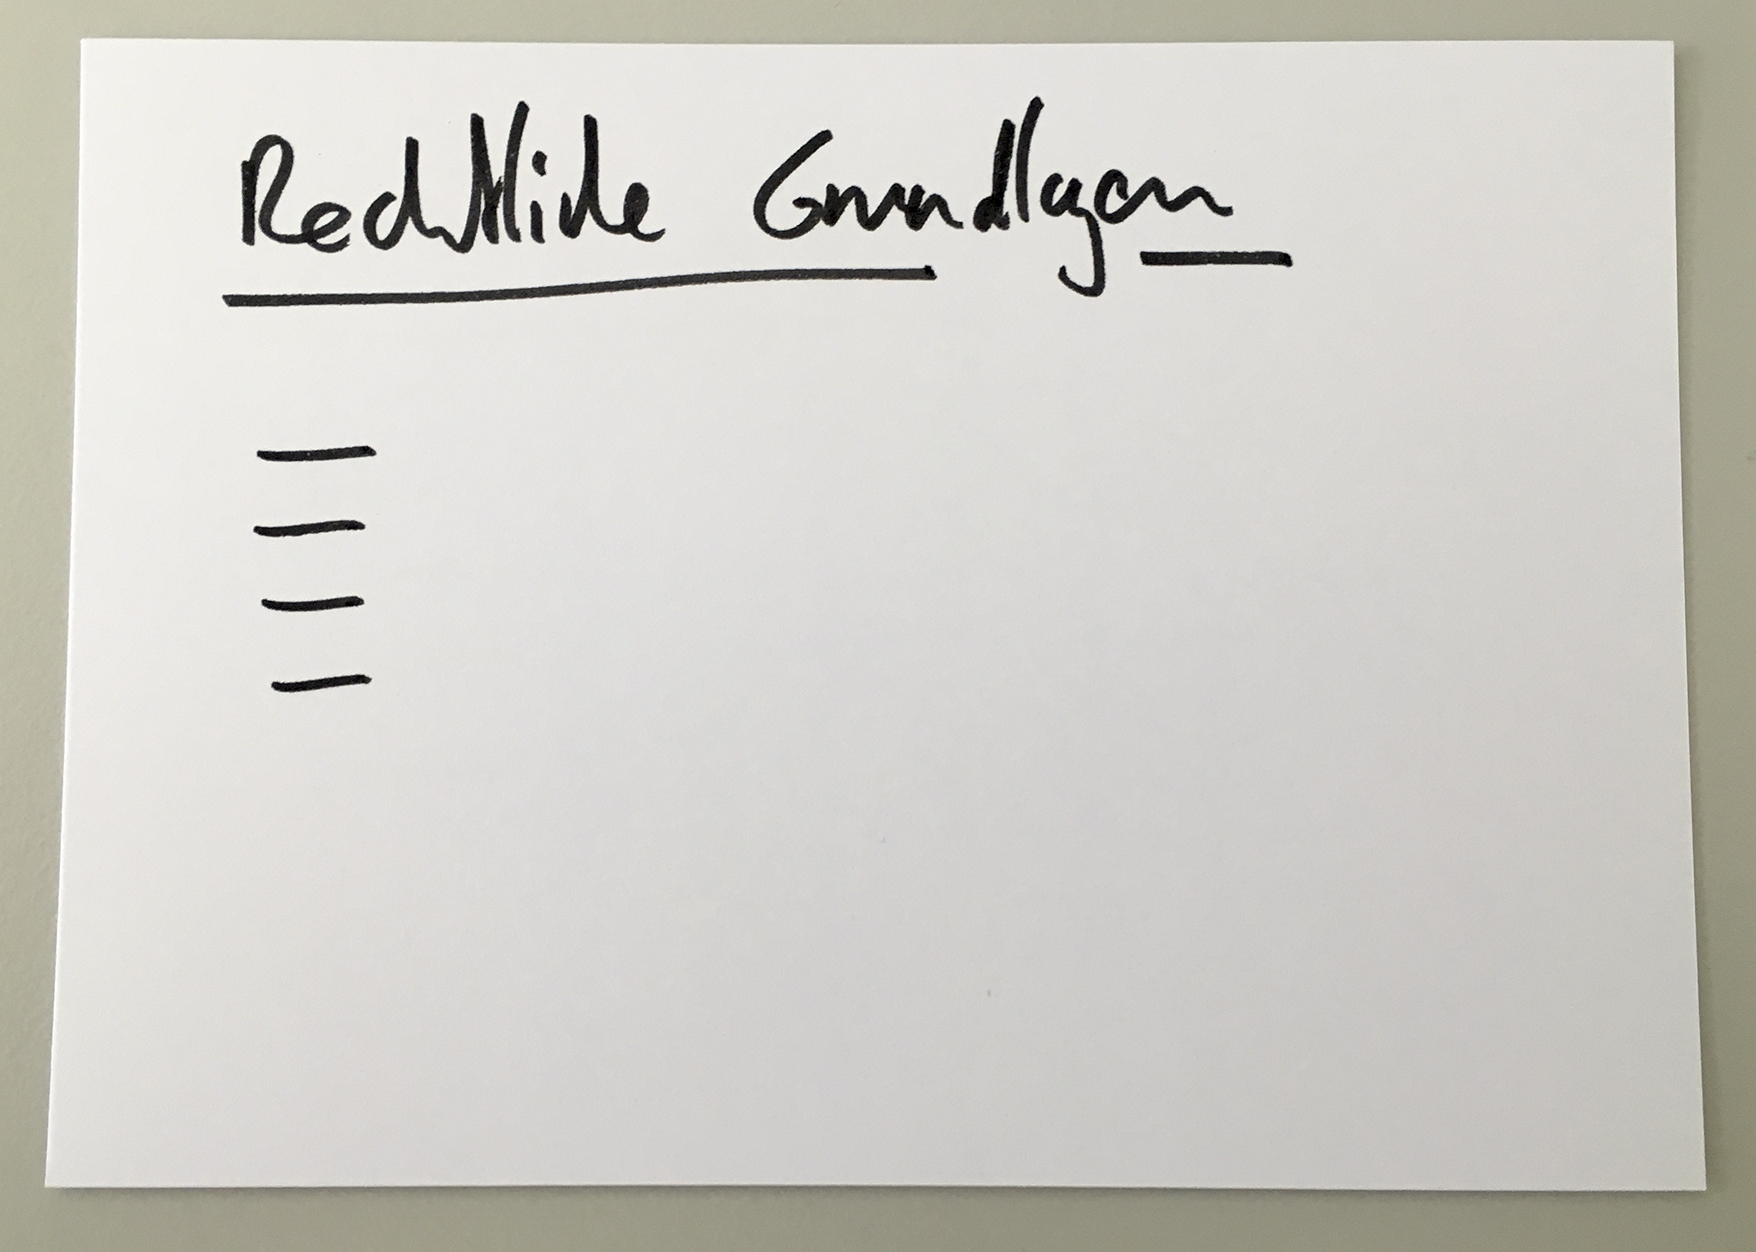 Rechtliche Grundlagen
—
—
—
—